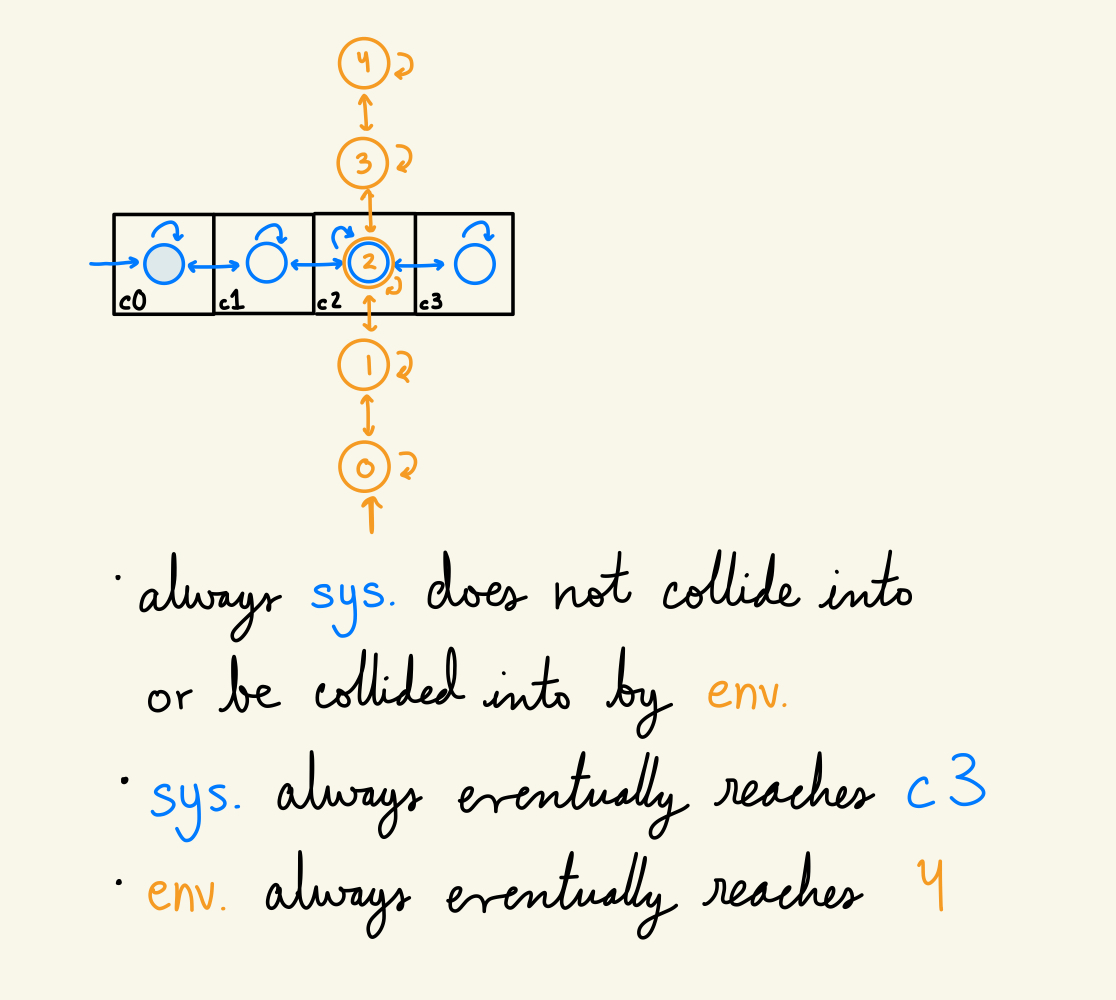 4
3
2
c0 c1 c2 c3
1
0
· always sys. does not collide into
or be collided into by env.
· sys. always eventually reaches c3
· env. always eventually reaches 4